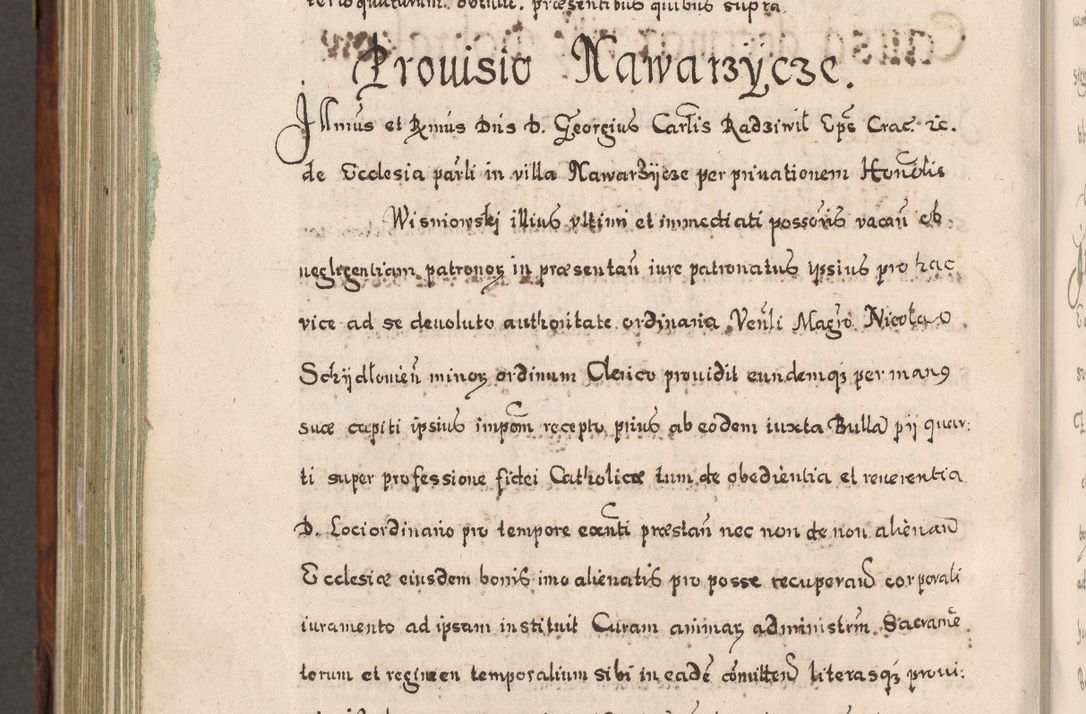 praesentibus quibus supra.
Prouisio Nawarzÿcze.
Illmus et Rmus Dns D. Georgius Carlis Radziwil Eps Crac. etc.
de Ecclesia parli in villa Nawarzÿcze per priuationem Honolis
Wisniowskj illius vltimi et immediati possoris vacan ob
neglegentiam patronoꝝ in praesentan iure patronatus ipsius pro hac
vice ad se deuoluto authoritate ordinaria Venli Magro Nicolao
Schÿdłouien minoꝝ ordinum Clerico prouidit eundemqꝫ per manꝰ
suae capiti ipsius impom recepto prius ab eodem iuxta Bulla pij quar:
ti super professione fidei Catholicae tum de obedientia et reuerentia
D. Loci ordinario pro tempore exnti praestan nec non de non alienan
Ecclesiae eiusdem bonis imo alienatis pro posse recuperan corporali
iuramento ad ipsam instituit Curam animaꝝ administrm Sacrame
torum et regimen temporalium sibi in eade comitten literasqꝫ proui: